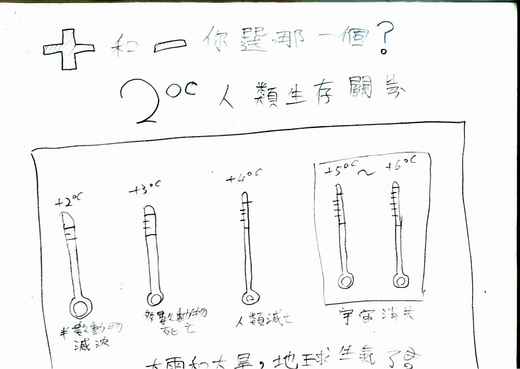 +和-你選那一個?
2°C人類生存關
+2°C
+3°C
+4°C
+5°C~+6°C
半數動物
滅
多數動物
死亡
人類滅亡
宇宙消失
大雨和大旱,地球生